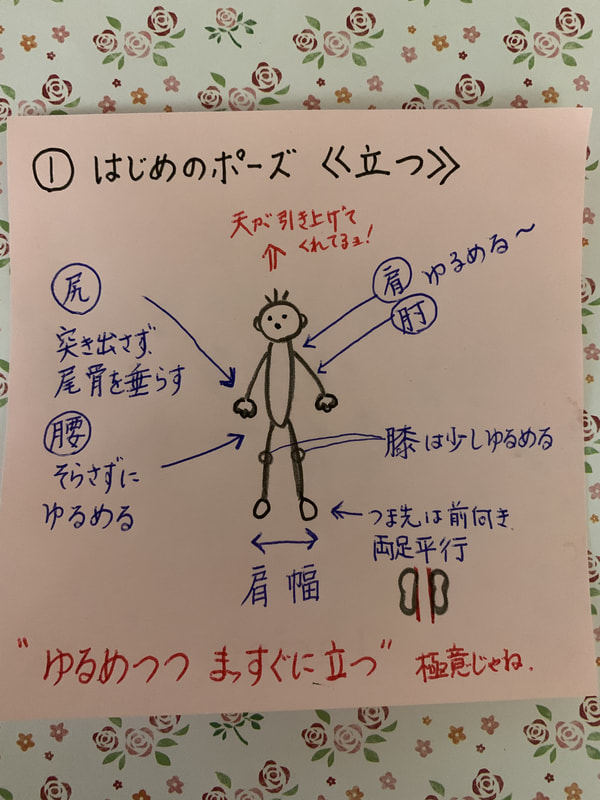 ① はじめのポーズ 《立つ》
天が引き上げて
くれてるョ!
尻
突き出さず
尾骨を垂らす
肩 ゆるめる〜
肘
腰
そらさずに
ゆるめる
膝は少しゆるめる
つま先は前向き
両足平行
肩幅
"ゆるめつつ まっすぐに立つ" 極意じゃね.